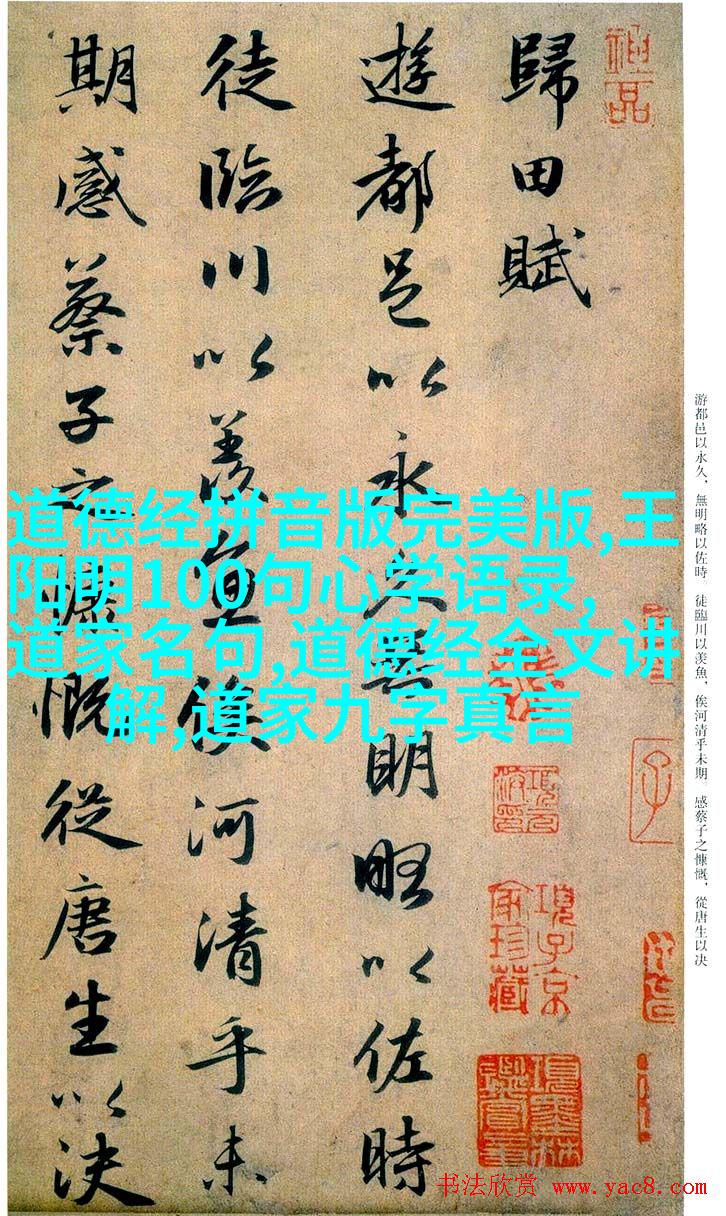 歸田賦
遊都邑以永久無明略以佐時
徒臨川以羨魚俟河清乎未
期感蔡子之慷慨從唐生以決
道德经拼音版完美版,王
阳明100句心学语录,
道家名句,道德经全文讲
解,道家九字真言
游都邑以永久，無明略以佐時。徒臨川以羨魚，俟河清乎未期。感蔡子之慷慨，從唐生以決
神品
項子京
家珍藏
項墨林
鑑賞章
子
书法欣赏 www.yac8.com